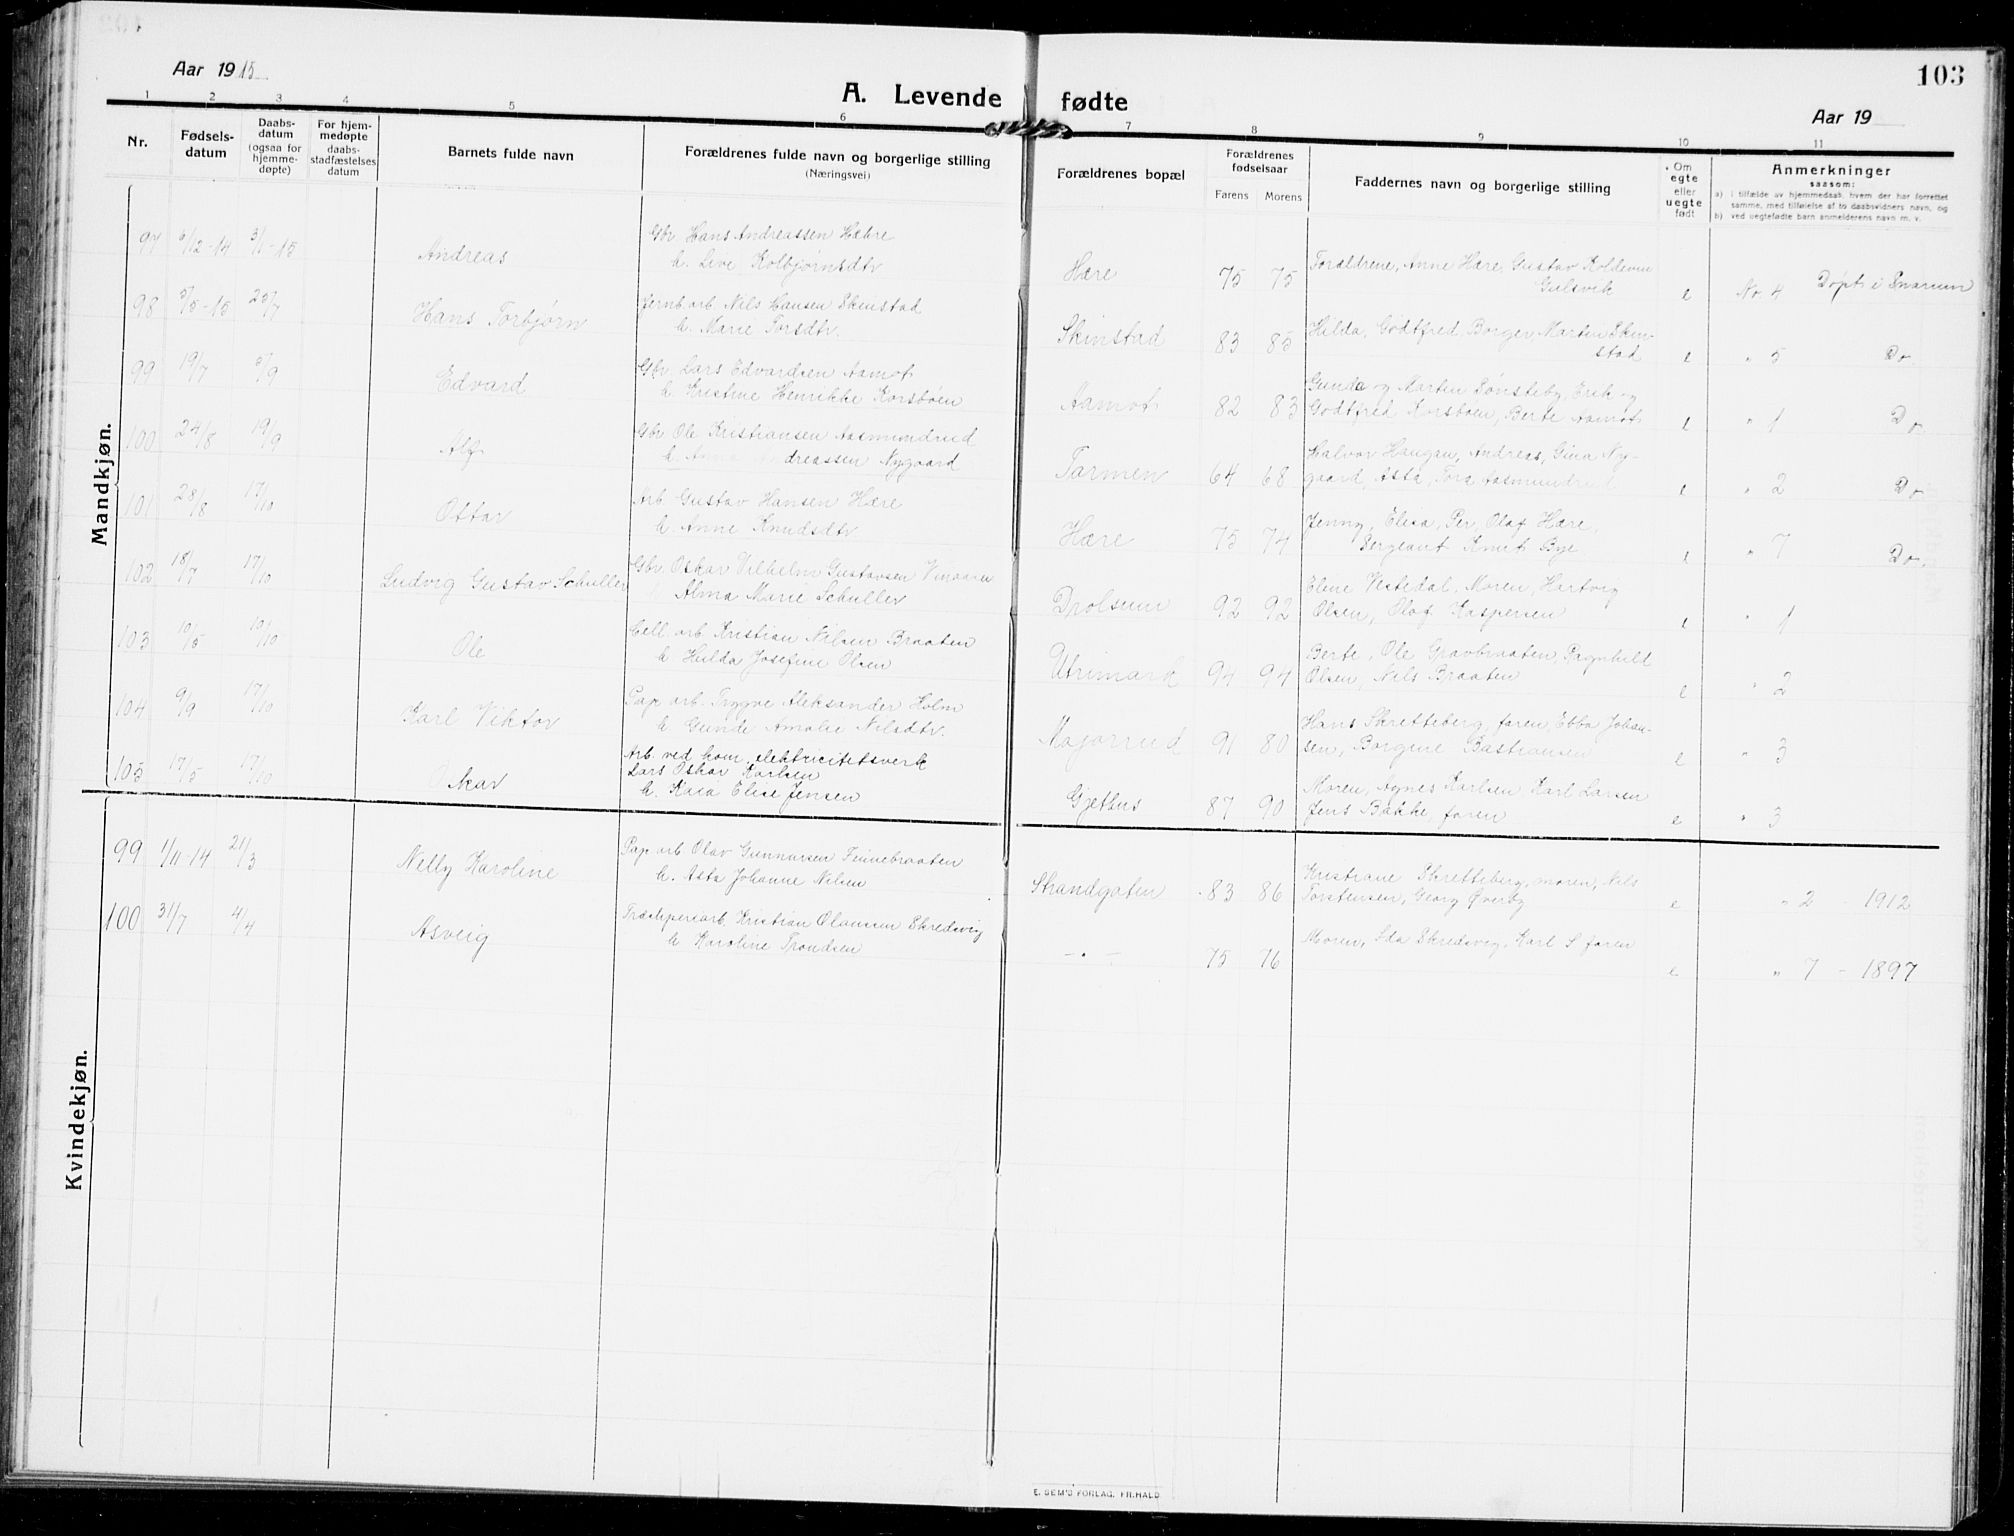 103
Aar 1915
A. Levende fødte
Aar 19
1 2 3 4 5 6 7 8 9 10 11
Nr.
Fødsels-
datum
Daabs-
datum
(ogsaa for
hjemme-
døpte)
For hjem-
medøpte
daabs-
stadfæstelses
datum
Barnets fulde navn
Forældrenes fulde navn og borgerlige stilling
(Næringsvei)
Forældrenes bopæl
Forældrenes
fødselsaar
Farens Morens
Faddernes navn og borgerlige stilling
Om
egte
eller
uegte
født
Anmerkninger
saasom:
a) i tilfælde av hjemmedaab, hvem der har forrettet
samme, med tilføielse af to daabsvidners navn, og
b) ved uegtefødte barn anmelderens navn m. v.
Mandkjøn.
97 6/12-14 3/1-15 Andreas
Gbr Hans Andreassen Hæhre
h. Live Kolbjørnsdtr
Hære 75 75
Forældrene, Anne Hære, Gustav Koldevin
Gulsvik
e No 4 Døpt i Snarum
98 5/5-15 25/7 Hans Torbjørn
Jernb. arb. Nils Hansen Skinstad
h. Marie Torsdtr.
Skinstad 83 85
Hilda, Godtfred, Borger, Martin Skin-
stad
e " 5 Do
99 19/7 5/9 Edvard
Gbr Lars Edvardsen Aamot
h. Kristine Henrikke Korsbøen
Aamot 82 83
Gunda og Martin Sønsteby, Erik og
Godtfred Korsbøen, Berte Aamot
e " 1 Do
100 24/8 19/9 Alf
Gbr Ole Kristiansen Aasmundrud
h. Anna Andreassen Nygaard
Tormen 64 68
Halvor Haugan, Andreas, Gina Ny-
gaard, Asta, Tora Aasmundrud
e " 2 Do
101 28/8 17/10 Ottar
Arb Gustav Hansen Hære
h. Anne Knudsdtr
Hære 75 74
Jenny, Elisa, Per, Olaf Hære,
Sergeant Knut Bye
e " 7 Do.
102 18/7 17/10 Ludvig Gustav Schuller
Gbr. Oskar Vilhelm Gustavsen
Alma Marie Schuller
Drolsum 92 92
Elene Vestedal, Moren, Hartvig
Olsen, Olaf Kaspersen
e " 1
103 10/5 10/10 Ole
Cell. arb Kristian Nilsen Braaten
h Hilda Josefine Olsen
94 94
Berte, Ole Gravbraaten, Ragnhild
Olsen, Nils Braaten
e " 2
104 9/9 17/10 Karl Viktor
Pap arb. Trygve Aleksander Holm
h Gunda Amalie Nilsdtr.
Majorrud 91 80
Hans Skretteberg, faren, Ebba Johan-
sen, Borgine Bastiansen
e " 3
105 17/5 17/10 Oskar
Arb. ved kom. elektricitetsverk
Lars Oskar Karlsen
h. Kaia Elise Jensen
Gjethus 87 90
Moren, Agnes Karlsen Karl Larsen
Jens Bakke, faren
e " 3
Kvindekjøn.
99 1/11-14 21/3 Nelly Karoline
Pap. arb Olav Gunnarsen Finnebraaten
h. Asta Johanne Nilsen
Strandgaten 83 86
Kristiane Skretteberg, moren, Nils
Torstensen, Georg Øverby
e " 2 - 1912
100 31/7 4/4 Asveig
Træsliperiarb. Kristian Olaussen Skredsvig
h Karoline Trondsen
- " - 75 76
Moren, Ida Skredsvig, Karl S faren
e " 7 - 1897
E. SEM'S FORLAG, FR.HALD